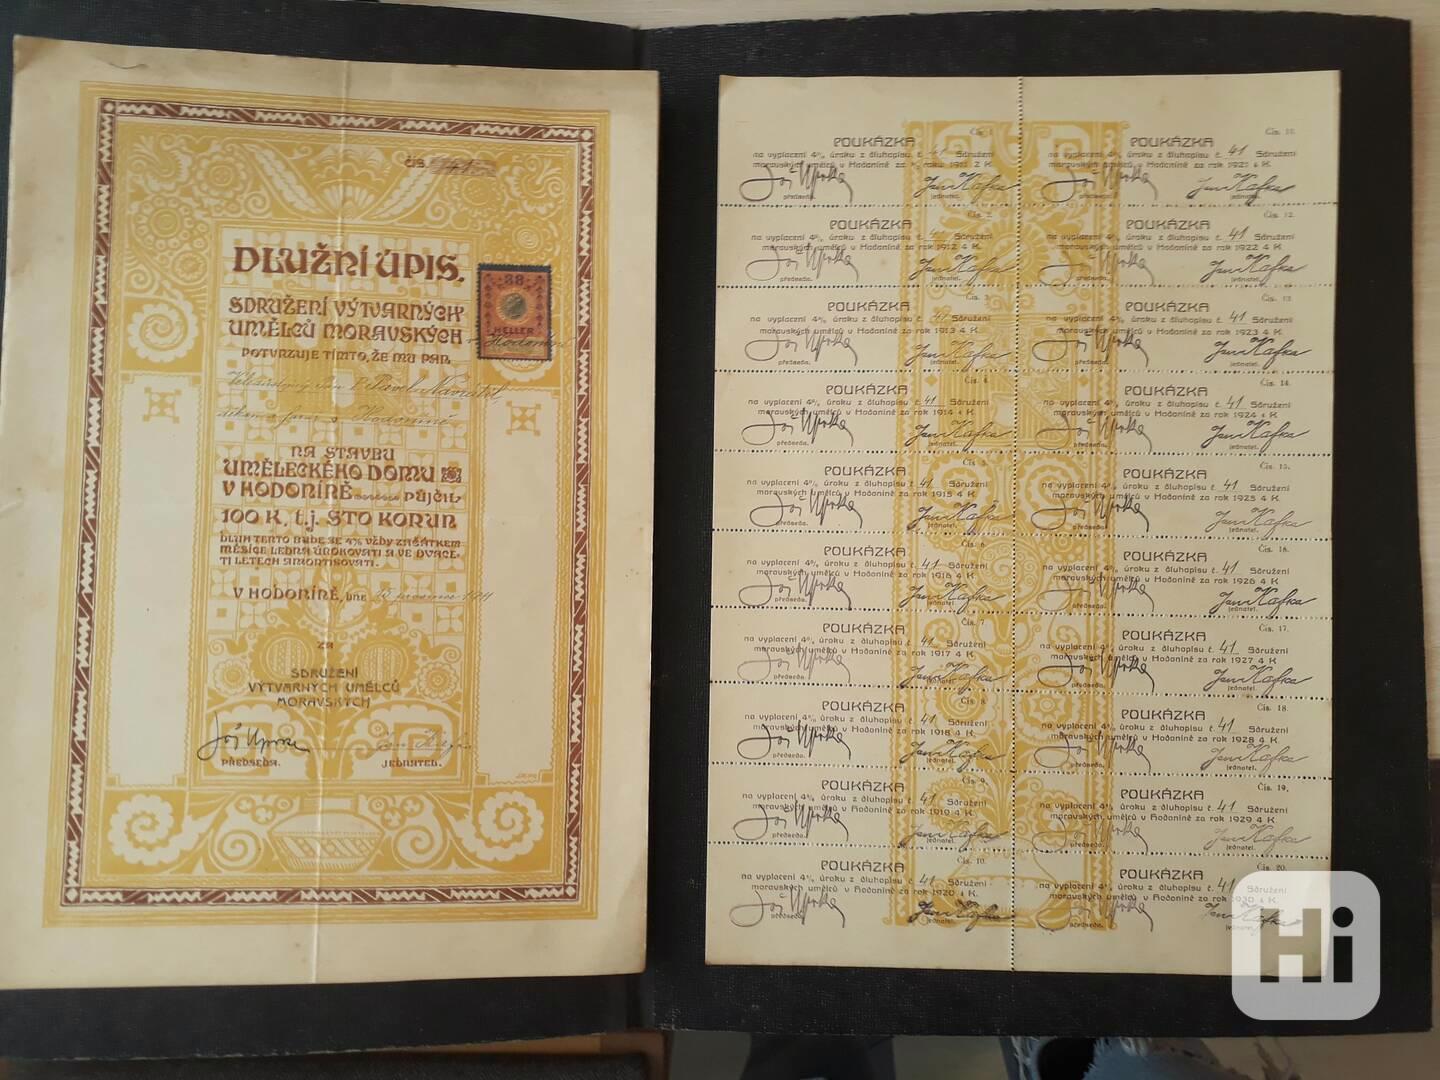 čís. 41
DLUŽNÍ ÚPIS.
88
HELLER
SDRUŽENÍ VÝTVARNÝCH
UMĚLCŮ MORAVSKÝCH v Hodoníně
POTVRZUJE TÍMTO, ŽE MU PAN
Navrátil
děkan a farář v Hodoníně
NA STAVBU
UMĚLECKÉHO DOMU
V HODONÍNĚ PŮJČIL
100 K, t.j. STO KORUN
DLUH TENTO BUDE SE 4% VŽDY ZAČÁTKEM
MĚSÍCE LEDNA ÚROKOVATI A VE DVACE-
TI LETECH AMORTISOVATI.
V HODONÍNĚ, DNE 1911
ZA
SDRUŽENÍ
VÝTVARNÝCH UMĚLCŮ
MORAVSKÝCH
Jož Uprka
PŘEDSEDA. JEDNATEL.
Čís. 1.
POUKÁZKA
na vyplacení 4% úroku z dluhopisu č. 41 Sdružení
moravských umělců v Hodoníně za 2 K.
Jož Uprka Jan Kafka
předseda. jednatel.
Čís. 2.
POUKÁZKA
na vyplacení 4% úroku z dluhopisu č. 41 Sdružení
moravských umělců v Hodoníně za rok 1912 4 K.
Jož Uprka Jan Kafka
předseda. jednatel.
Čís. 3.
POUKÁZKA
na vyplacení 4% úroku z dluhopisu č. 41 Sdružení
moravských umělců v Hodoníně za rok 1913 4 K.
Jož Uprka Jan Kafka
předseda. jednatel.
Čís. 4.
POUKÁZKA
na vyplacení 4% úroku z dluhopisu č. 41 Sdružení
moravských umělců v Hodoníně za rok 1914 4 K.
Jož Uprka Jan Kafka
předseda. jednatel.
Čís. 5.
POUKÁZKA
na vyplacení 4% úroku z dluhopisu č. 41 Sdružení
moravských umělců v Hodoníně za rok 1915 4 K.
Jož Uprka Jan Kafka
předseda. jednatel.
Čís. 6.
POUKÁZKA
na vyplacení 4% úroku z dluhopisu č. 41 Sdružení
moravských umělců v Hodoníně za rok 1916 4 K.
Jož Uprka Jan Kafka
předseda. jednatel.
Čís. 7.
POUKÁZKA
na vyplacení 4% úroku z dluhopisu č. 41 Sdružení
moravských umělců v Hodoníně za rok 1917 4 K.
Jož Uprka Jan Kafka
předseda. jednatel.
Čís. 8.
POUKÁZKA
na vyplacení 4% úroku z dluhopisu č. 41 Sdružení
moravských umělců v Hodoníně za rok 1918 4 K.
Jož Uprka Jan Kafka
předseda. jednatel.
Čís. 9.
POUKÁZKA
na vyplacení 4% úroku z dluhopisu č. 41 Sdružení
moravských umělců v Hodoníně za rok 1919 4 K.
Jož Uprka Jan Kafka
předseda. jednatel.
Čís. 10.
POUKÁZKA
na vyplacení 4% úroku z dluhopisu č. 41 Sdružení
moravských umělců v Hodoníně za rok 1920 4 K.
Jož Uprka Jan Kafka
předseda. jednatel.
POUKÁZKA
na vyplacení 4% úroku z dluhopisu č. 41 Sdružení
moravských umělců v Hodoníně za rok 1921 4 K.
Jož Uprka Jan Kafka
předseda. jednatel.
Čís. 12.
POUKÁZKA
na vyplacení 4% úroku z dluhopisu č. 41 Sdružení
moravských umělců v Hodoníně za rok 1922 4 K.
Jož Uprka Jan Kafka
předseda. jednatel.
Čís. 13.
POUKÁZKA
na vyplacení 4% úroku z dluhopisu č. 41 Sdružení
moravských umělců v Hodoníně za rok 1923 4 K.
Jož Uprka Jan Kafka
předseda. jednatel.
Čís. 14.
POUKÁZKA
na vyplacení 4% úroku z dluhopisu č. 41 Sdružení
moravských umělců v Hodoníně za rok 1924 4 K.
Jož Uprka Jan Kafka
předseda. jednatel.
Čís. 15.
POUKÁZKA
na vyplacení 4% úroku z dluhopisu č. 41 Sdružení
moravských umělců v Hodoníně za rok 1925 4 K.
Jož Uprka Jan Kafka
předseda. jednatel.
Čís. 16.
POUKÁZKA
na vyplacení 4% úroku z dluhopisu č. 41 Sdružení
moravských umělců v Hodoníně za rok 1926 4 K.
Jož Uprka Jan Kafka
předseda. jednatel.
Čís. 17.
POUKÁZKA
na vyplacení 4% úroku z dluhopisu č. 41 Sdružení
moravských umělců v Hodoníně za rok 1927 4 K.
Jož Uprka Jan Kafka
předseda. jednatel.
Čís. 18.
POUKÁZKA
na vyplacení 4% úroku z dluhopisu č. 41 Sdružení
moravských umělců v Hodoníně za rok 1928 4 K.
Jož Uprka Jan Kafka
předseda. jednatel.
Čís. 19.
POUKÁZKA
na vyplacení 4% úroku z dluhopisu č. 41 Sdružení
moravských umělců v Hodoníně za rok 1929 4 K.
Jož Uprka Jan Kafka
předseda. jednatel.
Čís. 20.
POUKÁZKA
na vyplacení 4% úroku z dluhopisu č. 41 Sdružení
moravských umělců v Hodoníně za rok 1930 4 K.
Jož Uprka Jan Kafka
předseda. jednatel.
Hi